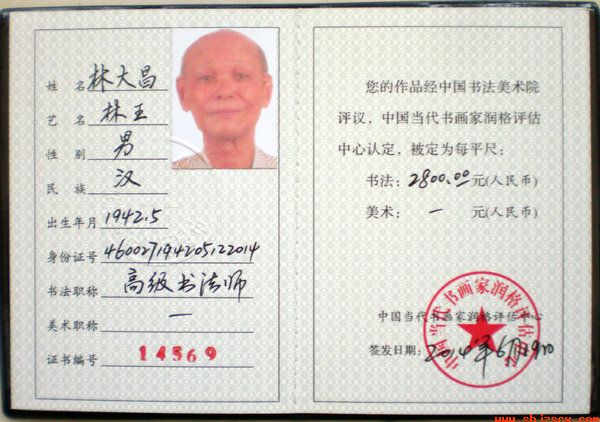 姓 名 林大昌
艺 名 林王
性 别 男
民 族 汉
出生年月 1942.5
身份证号 460027194205122014
书法职称 高级书法师
美术职称 一
证书编号 14569
您的作品经中国书法美术院
评议，中国当代书画家润格评估
中心认定，被定为每平尺：
书法：2800.00元(人民币)
美术： 一 元(人民币)
中国当代书画家润格评估中心
中国当代书画家润格评估中心
签发日期：2014年6月
www.shjzscx.com